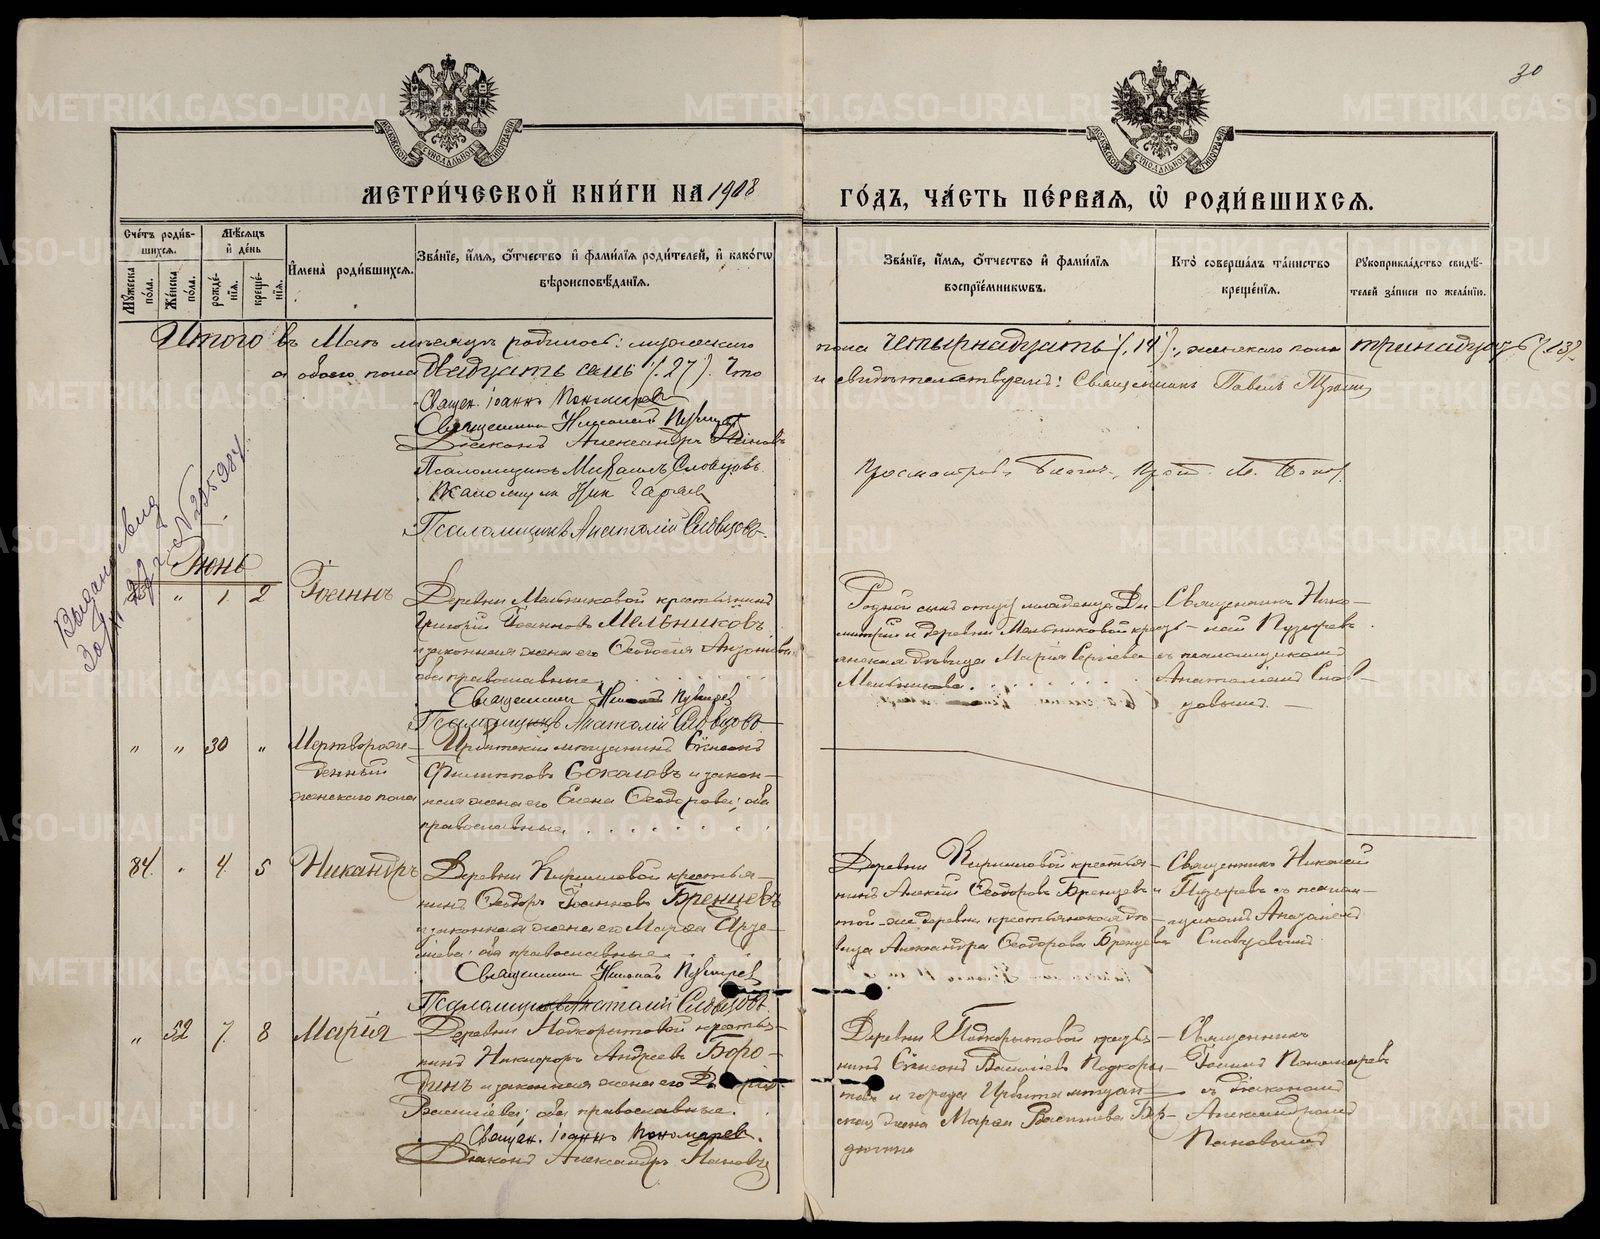 30
МОСКОВСКОЙ СѴНОДАЛЬНОЙ ТИПОГРАФІИ
МОСКОВСКОЙ СѴНОДАЛЬНОЙ ТИПОГРАФІИ
МЕТРИ́ЧЕСКОЙ КНИ́ГИ НА 1908
ГО́ДЪ, ЧА́СТЬ ПЕ́РВАѦ, Ѡ҆ РОДИ́ВШИХСѦ.
Сче́тъ роди́вшихсѧ.
Мѣ́сѧцъ и҆ де́нь
Му́жеска по́ла.
Же́нска по́ла.
рожде́нїѧ.
креще́нїѧ.
И҆мена̀ роди́вшихсѧ.
Зва́нїе, и҆́мѧ, ѻ҆́тчество и҆ фами́лїѧ роди́телей, и҆ како́гѡ вѣроисповѣ́данїѧ.
Зва́нїе, и҆́мѧ, ѻ҆́тчество и҆ фами́лїѧ воспрїе́мниковъ.
Кто̀ соверша́лъ та́инство креще́нїѧ.
Рукоприкла́дство свидѣ́телей за́писи по жела́нїю.
Итого въ Маѣ мѣсяцѣ родилось: мужескаго
а обоего пола двадцать семь (27). Что
Свящ. Іоаннъ Пономаревъ
Священникъ Николай Пузыревъ
Діаконъ Александръ Пановъ
Псаломщикъ Михаилъ Словцовъ.
Псаломщикъ Ник.
Псаломщикъ Анатолій Словцовъ.
пола четырнадцать (14), женскаго пола тринадцать (13)
и свидѣтельствуемъ: Священникъ Павелъ
Просмотрѣлъ Благоч. Прот.
Іюнь
" 1. 2
Іоаннъ
Деревни Мельниковой крестьянинъ
Григорій Іоанновъ Мельниковъ
и законная жена его Ѳеодосія
оба православные.
Священникъ Николай Пузыревъ
Псаломщикъ Анатолій Словцовъ
Родной сынъ отца младенца Ди-
митрій и деревни Мельниковой кресть-
янская дѣвица Марія Сергіева
Мельникова.
Священникъ Нико-
лай Пузыревъ
съ псаломщикомъ
Анатоліемъ Слов-
цовымъ.
" " 30 "
Мертворож-
денный
женскаго пола
Ирбитскій мѣщанинъ Сѵмеонъ
Филипповъ Соколовъ и закон-
ная жена его Елена Ѳеодорова; оба
православные.
84. " 4. 5
Никандръ
Деревни Кирилловой кресть-
нинъ Ѳеодоръ Іоанновъ Бренцевъ
и законная жена его Марѳа
оба православные.
Священникъ Николай Пузыревъ
Псаломщикъ Анатолій Словцовъ.
Деревни Кирилловой крестья-
нинъ Алексій Ѳеодоровъ Бренцевъ и
той-же деревни крестьянская дѣ-
вица Александра Ѳеодорова Бренцева
Священникъ Николай
Пузыревъ съ псалом-
щикомъ Анатоліемъ
Словцовымъ.
" 52 7. 8
Марія
Деревни Подкорытовой крестья-
нинъ Никифоръ Андреевъ Боро-
динъ и законная жена его
Василіева; оба православные.
Свящ. Іоаннъ Пономаревъ.
Діаконъ Александръ Пановъ
Деревни Подкорытовой кресть-
нинъ Сѵмеонъ Василіевъ Подкоры-
товъ и города Ирбита мѣщан-
ская жена Марѳа Василіева Бер-
дюгина
Священникъ
Іоаннъ Пономаревъ
съ Діакономъ
Александромъ
Пановымъ